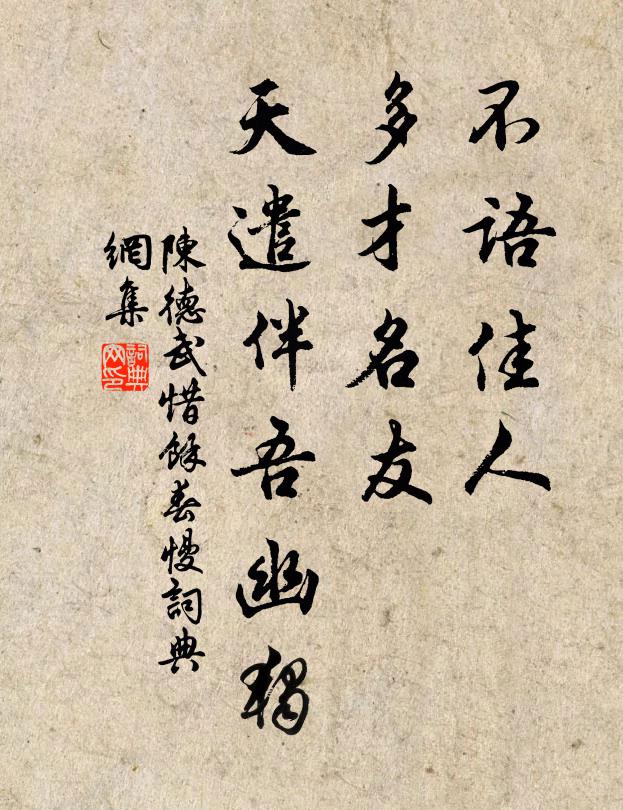 不語佳人
多才名友
天遣伴吾幽獨
陳德武惜餘春慢詞典
網集
詞典網印